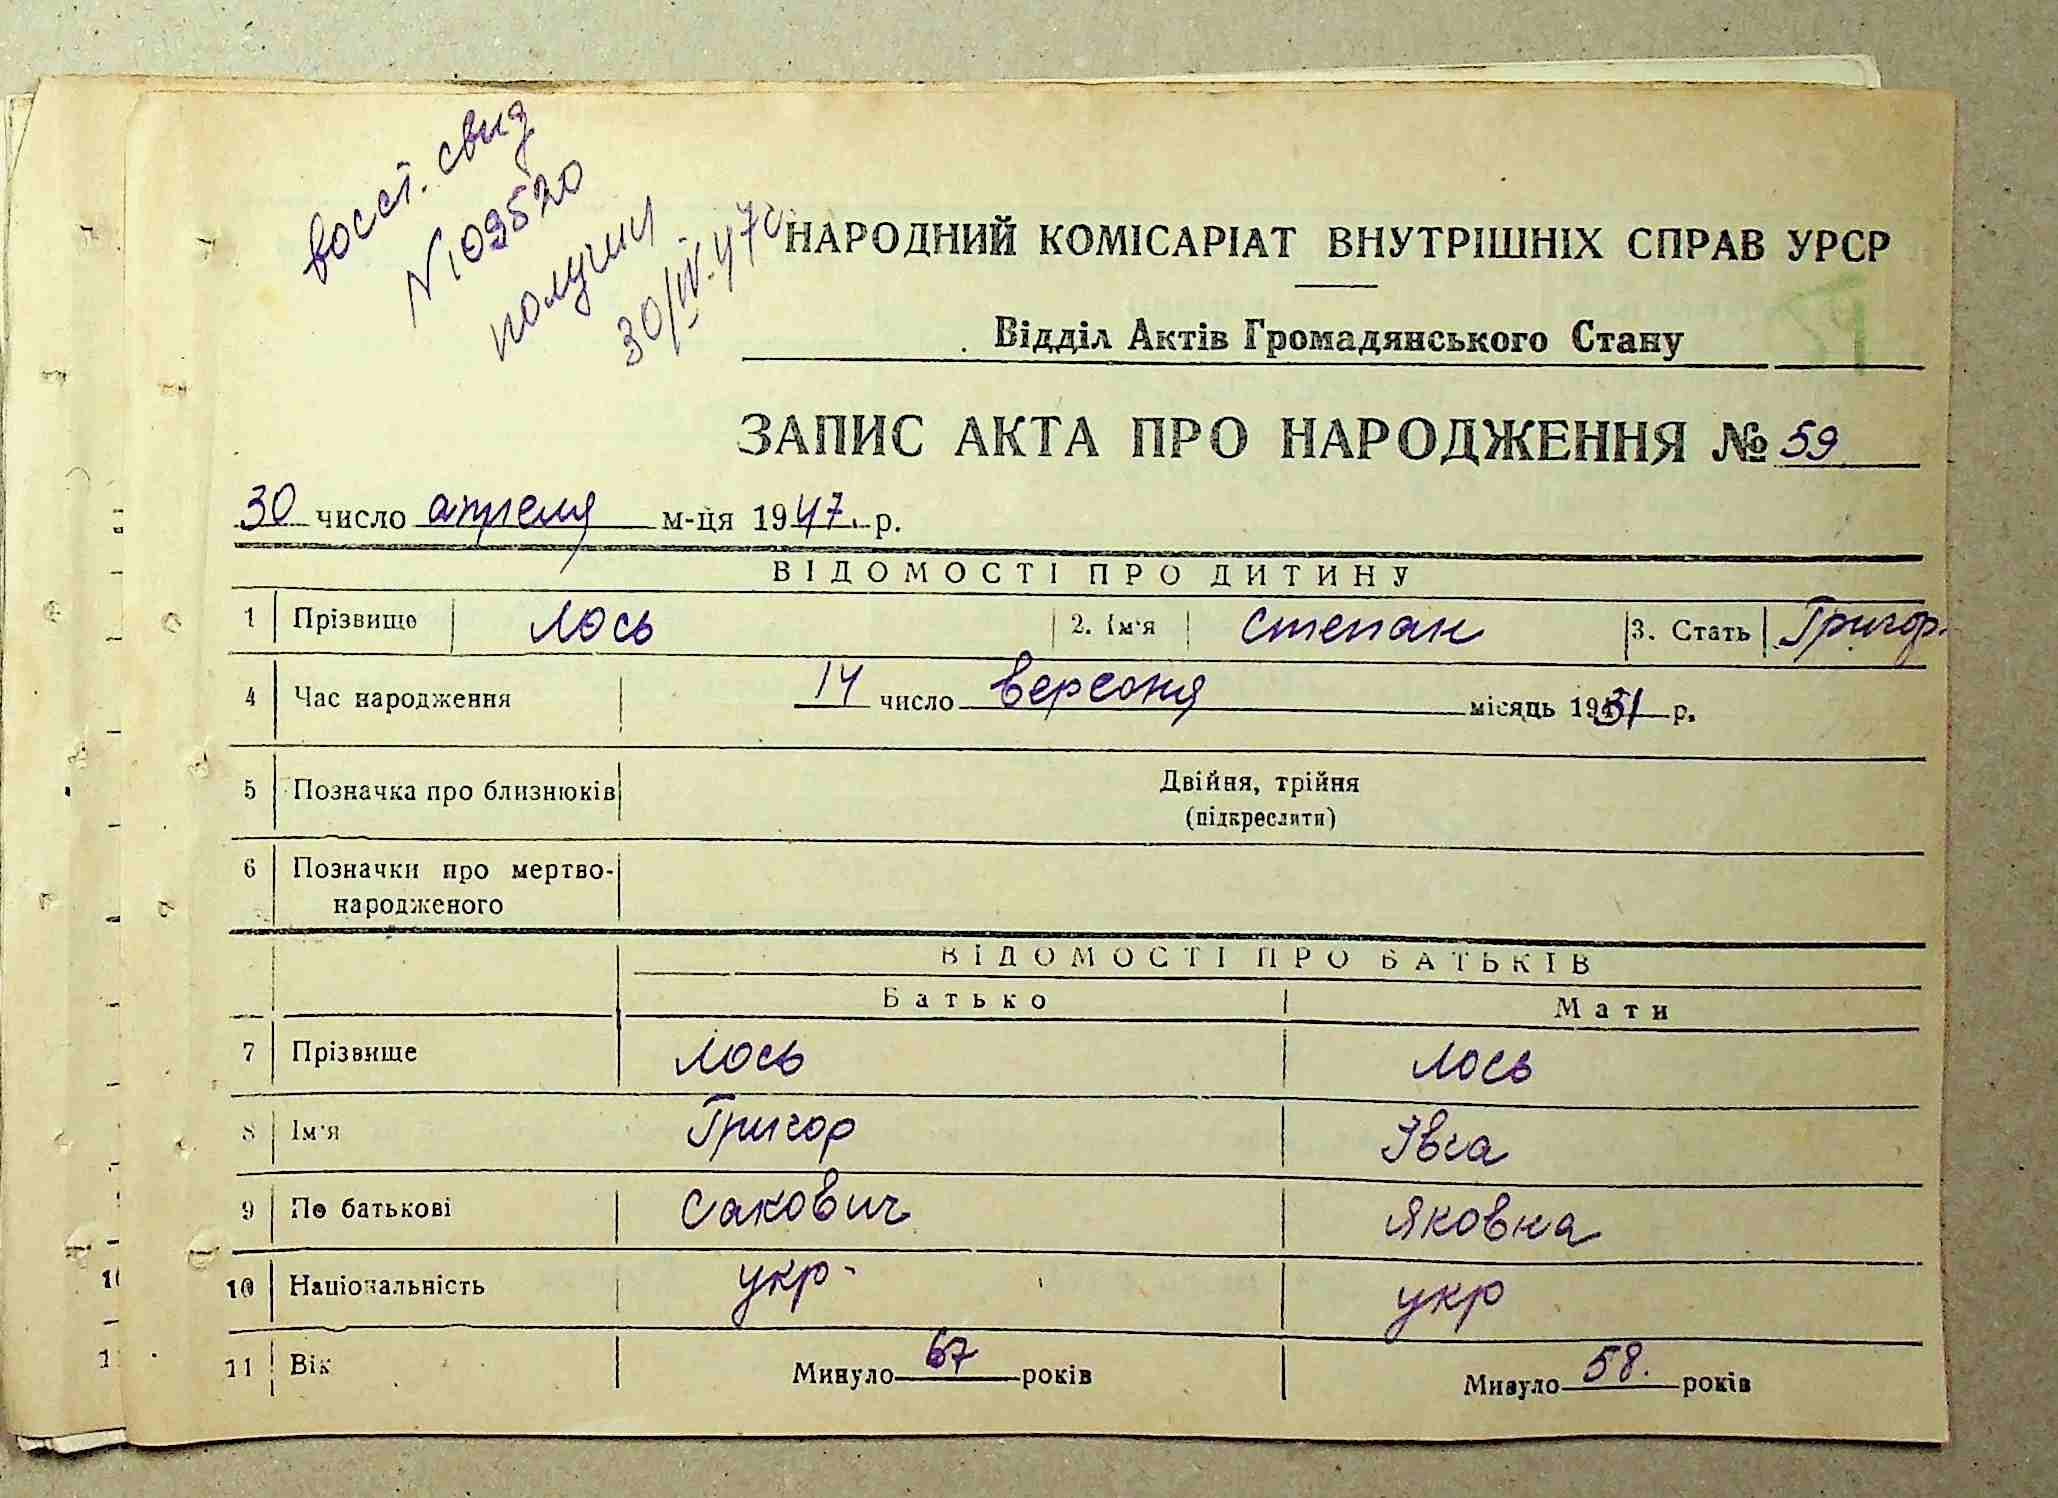 восст. свид
N 109520
получил
30/IV.47г.
НАРОДНИЙ КОМІСАРІАТ ВНУТРІШНІХ СПРАВ УРСР
Відділ Актів Громадянського Стану
ЗАПИС АКТА ПРО НАРОДЖЕННЯ № 59
30 число апреля м-ця 1947. р.
ВІДОМОСТІ ПРО ДИТИНУ
1 Прізвище Лось 2. Ім'я Степан 3. Стать Григор.
4 Час народження 14 число вересня місяць 1931 р.
5 Позначка про близнюків Двійня, трійня
(підкреслити)
6 Позначки про мертво-
народженого
ВІДОМОСТІ ПРО БАТЬКІВ
Батько Мати
7 Прізвище Лось Лось
8 Ім'я Григор Івга
9 По батькові Сакович Яковна
10 Національність укр. укр
11 Вік Минуло 67 років Минуло 58. років